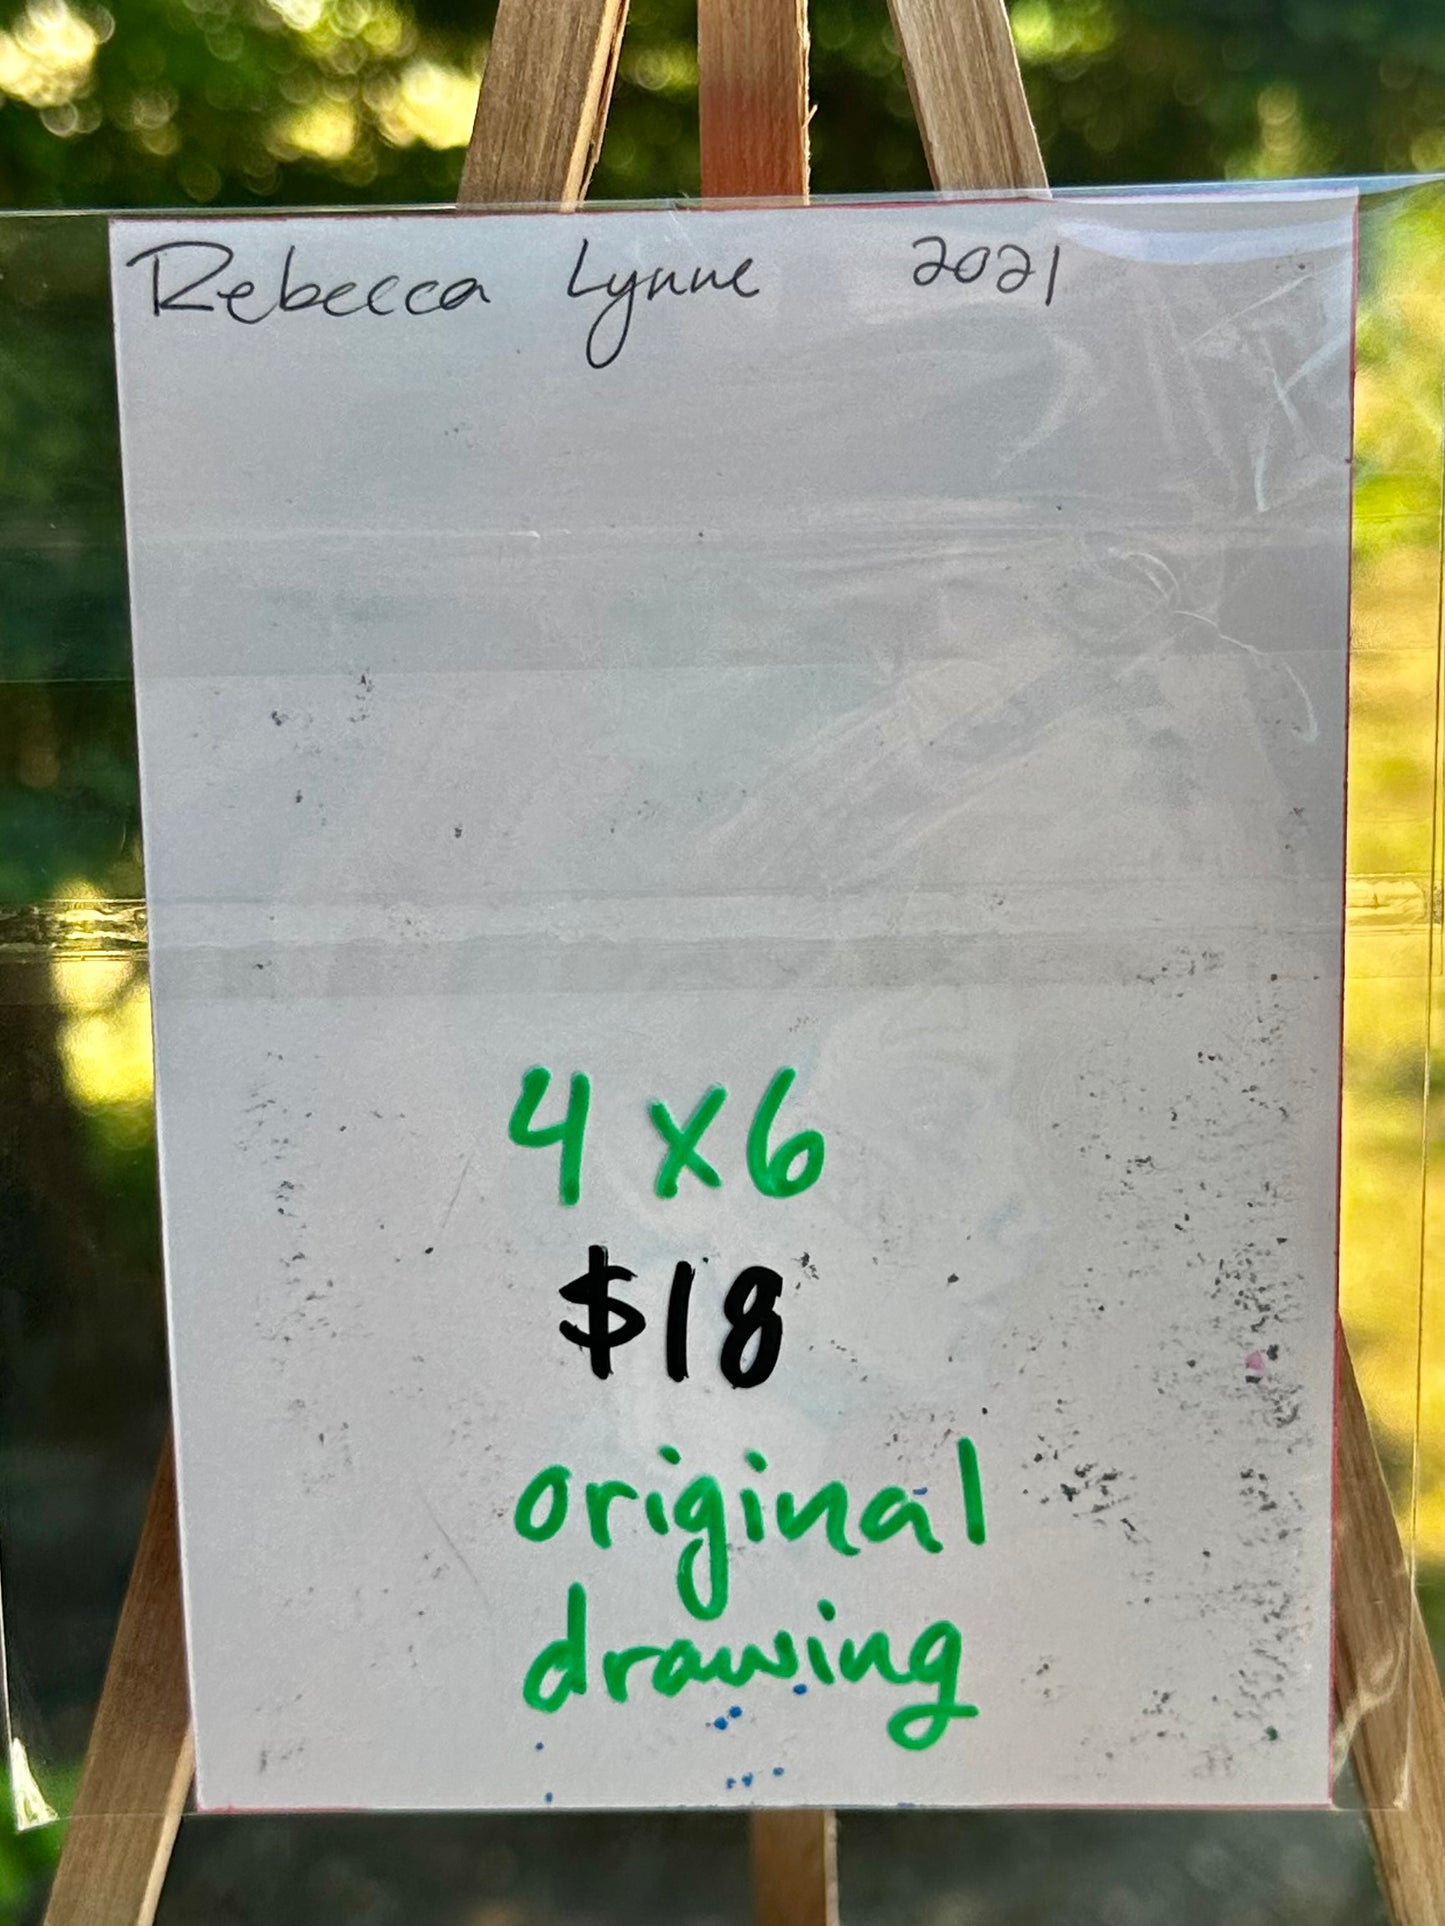 Rebecca Lynne 2021
4x6
$18
original
drawing